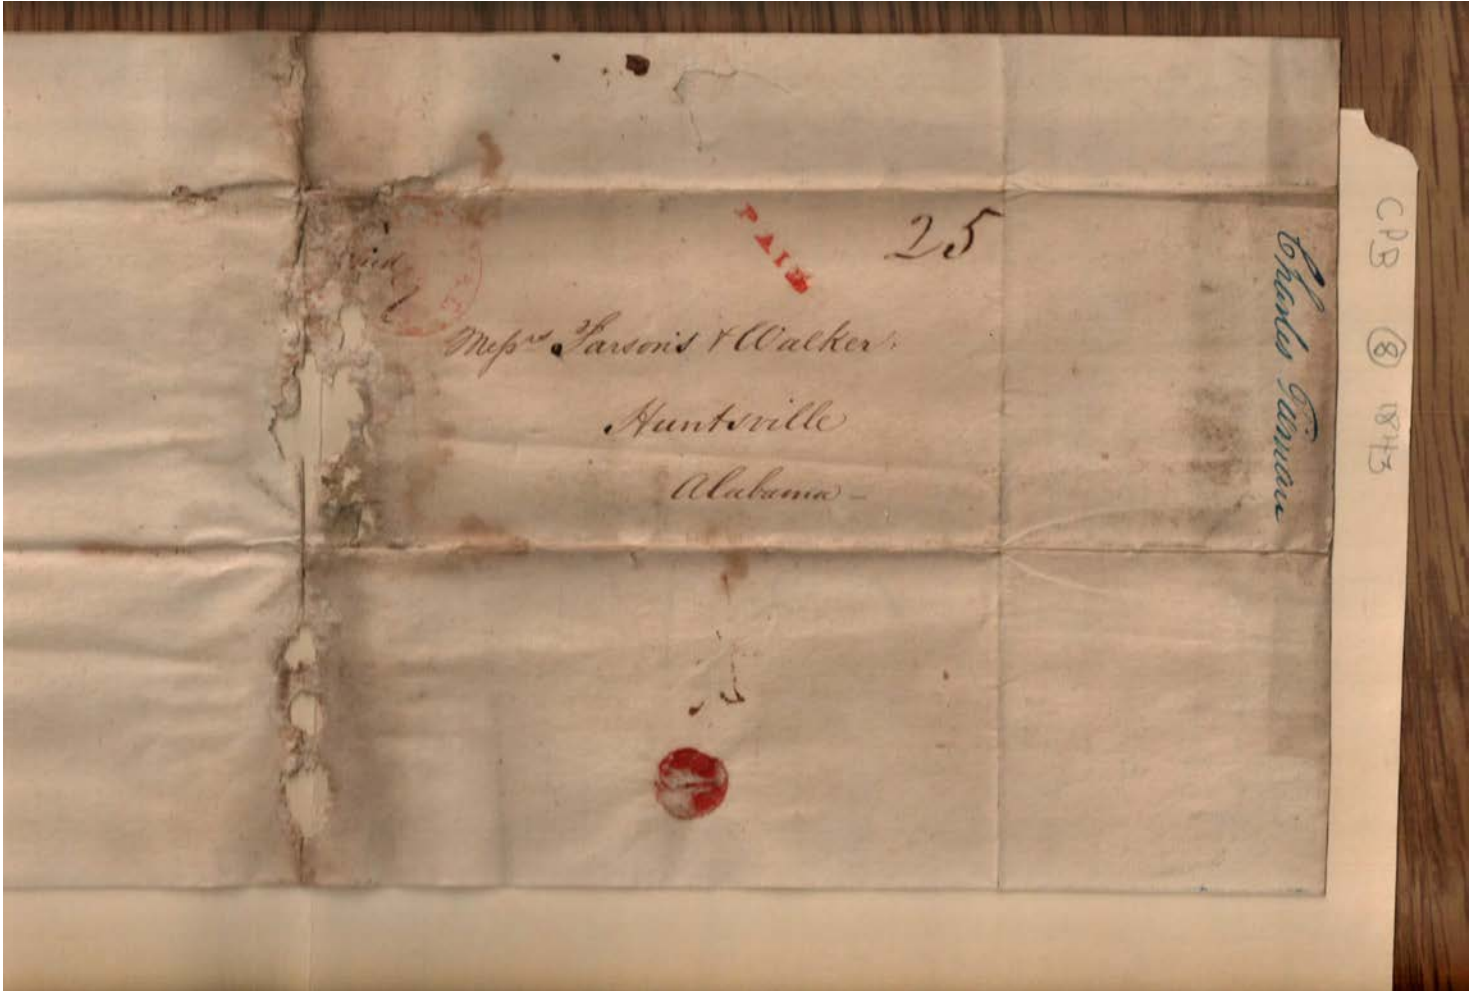 25
PAID
Messrs Parsons & Walker.
Huntsville
Alabama -
Charles
CPB 8 1843